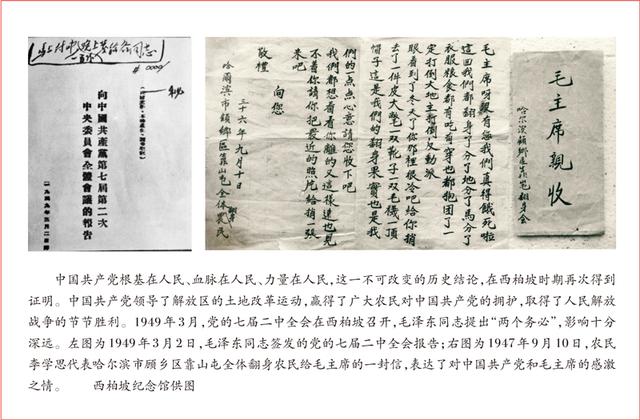 # 0009
向中國共產黨第七屆第二次
中央委員會全體會議的報告
一九四九年三月二日
毛主席親收
毛主席呀沒有您我們真得餓死啦
這回我們都翻身了分了地分了馬分了
衣服糧食都有吃有穿也都抱团了一
定打倒大地主打倒反動派
眼看到了冬天了你那裡很冷吧給你捎
去了一件皮大氅一双靴子一双毛襪一頂
帽子這是我們的翻身果實也是我
們的点点心意請您收下吧
我們都想看看您離的又這樣遠也見
不着您請你把最近的照片給捎一張
來吧
向您
敬禮
三十六年九月十日
哈爾濱市顧鄉區靠山屯全体農民
中国共产党根基在人民、血脉在人民、力量在人民，这一不可改变的历史结论，在西柏坡时期再次得到
证明。中国共产党领导了解放区的土地改革运动，赢得了广大农民对中国共产党的拥护，取得了人民解放
战争的节节胜利。1949年3月，党的七届二中全会在西柏坡召开，毛泽东同志提出“两个务必”，影响十分
深远。左图为1949年3月2日，毛泽东同志签发的党的七届二中全会报告；右图为1947年9月10日，农民
李学思代表哈尔滨市顾乡区靠山屯全体翻身农民给毛主席的一封信，表达了对中国共产党和毛主席的感激
之情。 西柏坡纪念馆供图